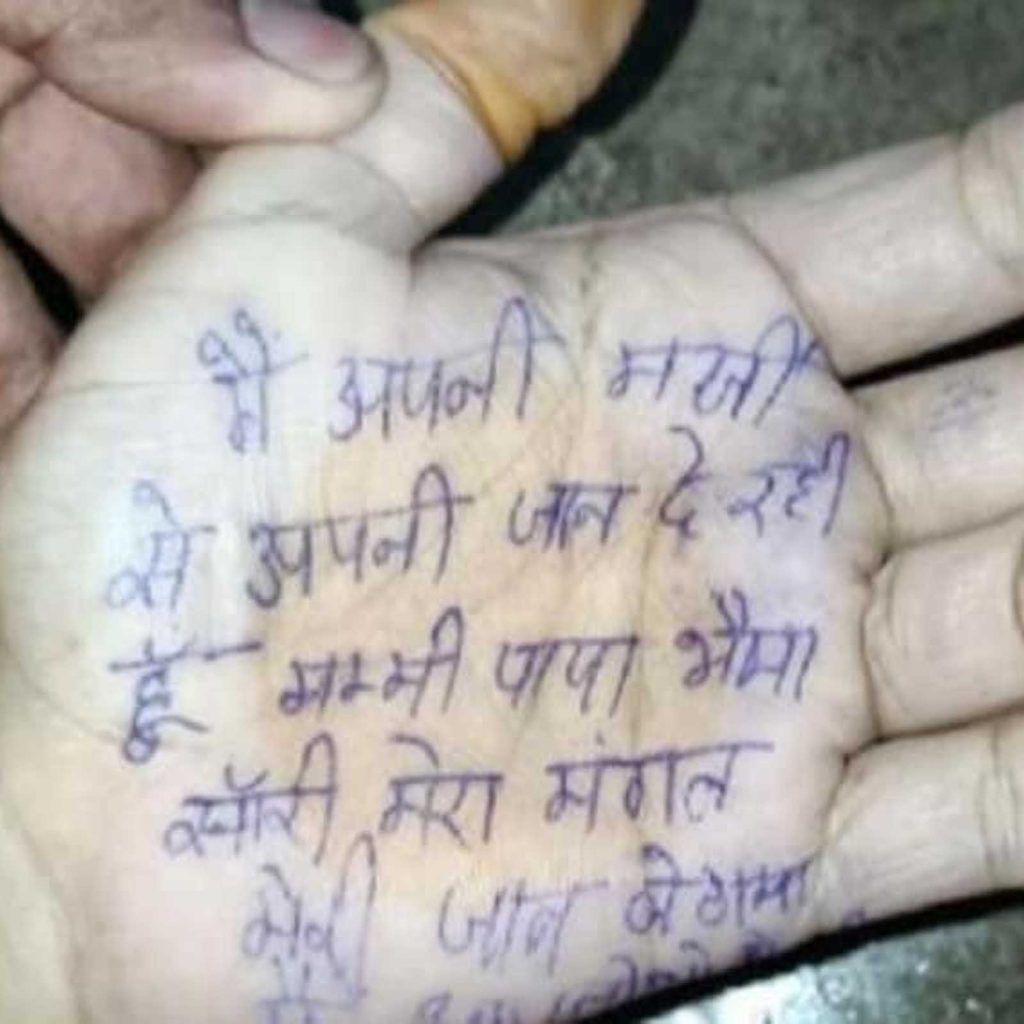 मैं अपनी मर्जी
से अपनी जान दे रही
हूँ मम्मी पापा भैया
सॉरी मेरा मंगल
मेरी जान